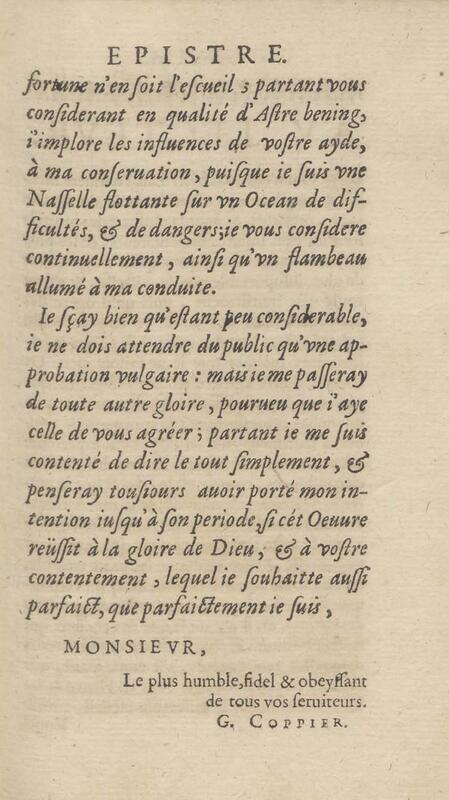 EPISTRE.
fortune n'en soit l'escueil; partant vous
considerant en qualité d'Astre bening,
i'implore les influences de vostre ayde,
à ma conseruation, puisque ie suis vne
Nasselle flottante sur vn Ocean de dif-
ficultés, & de dangers; ie vous considere
continuellement, ainsi qu'vn flambeau
allumé à ma conduite.
Ie sçay bien qu'estant peu considerable,
ie ne dois attendre du public qu'vne ap-
probation vulgaire: mais ie me passeray
de toute autre gloire, pourueu que i'aye
celle de vous agréer; partant ie me suis
contenté de dire le tout simplement, &
penseray tousiours auoir porté mon in-
tention iusqu'à son periode, si cét Oeuure
reüssit à la gloire de Dieu, & à vostre
contentement, lequel ie souhaitte aussi
parfaict, que parfaictement ie suis,
MONSIEVR,
Le plus humble, fidel & obeyssant
de tous vos seruiteurs.
G. COPPIER.